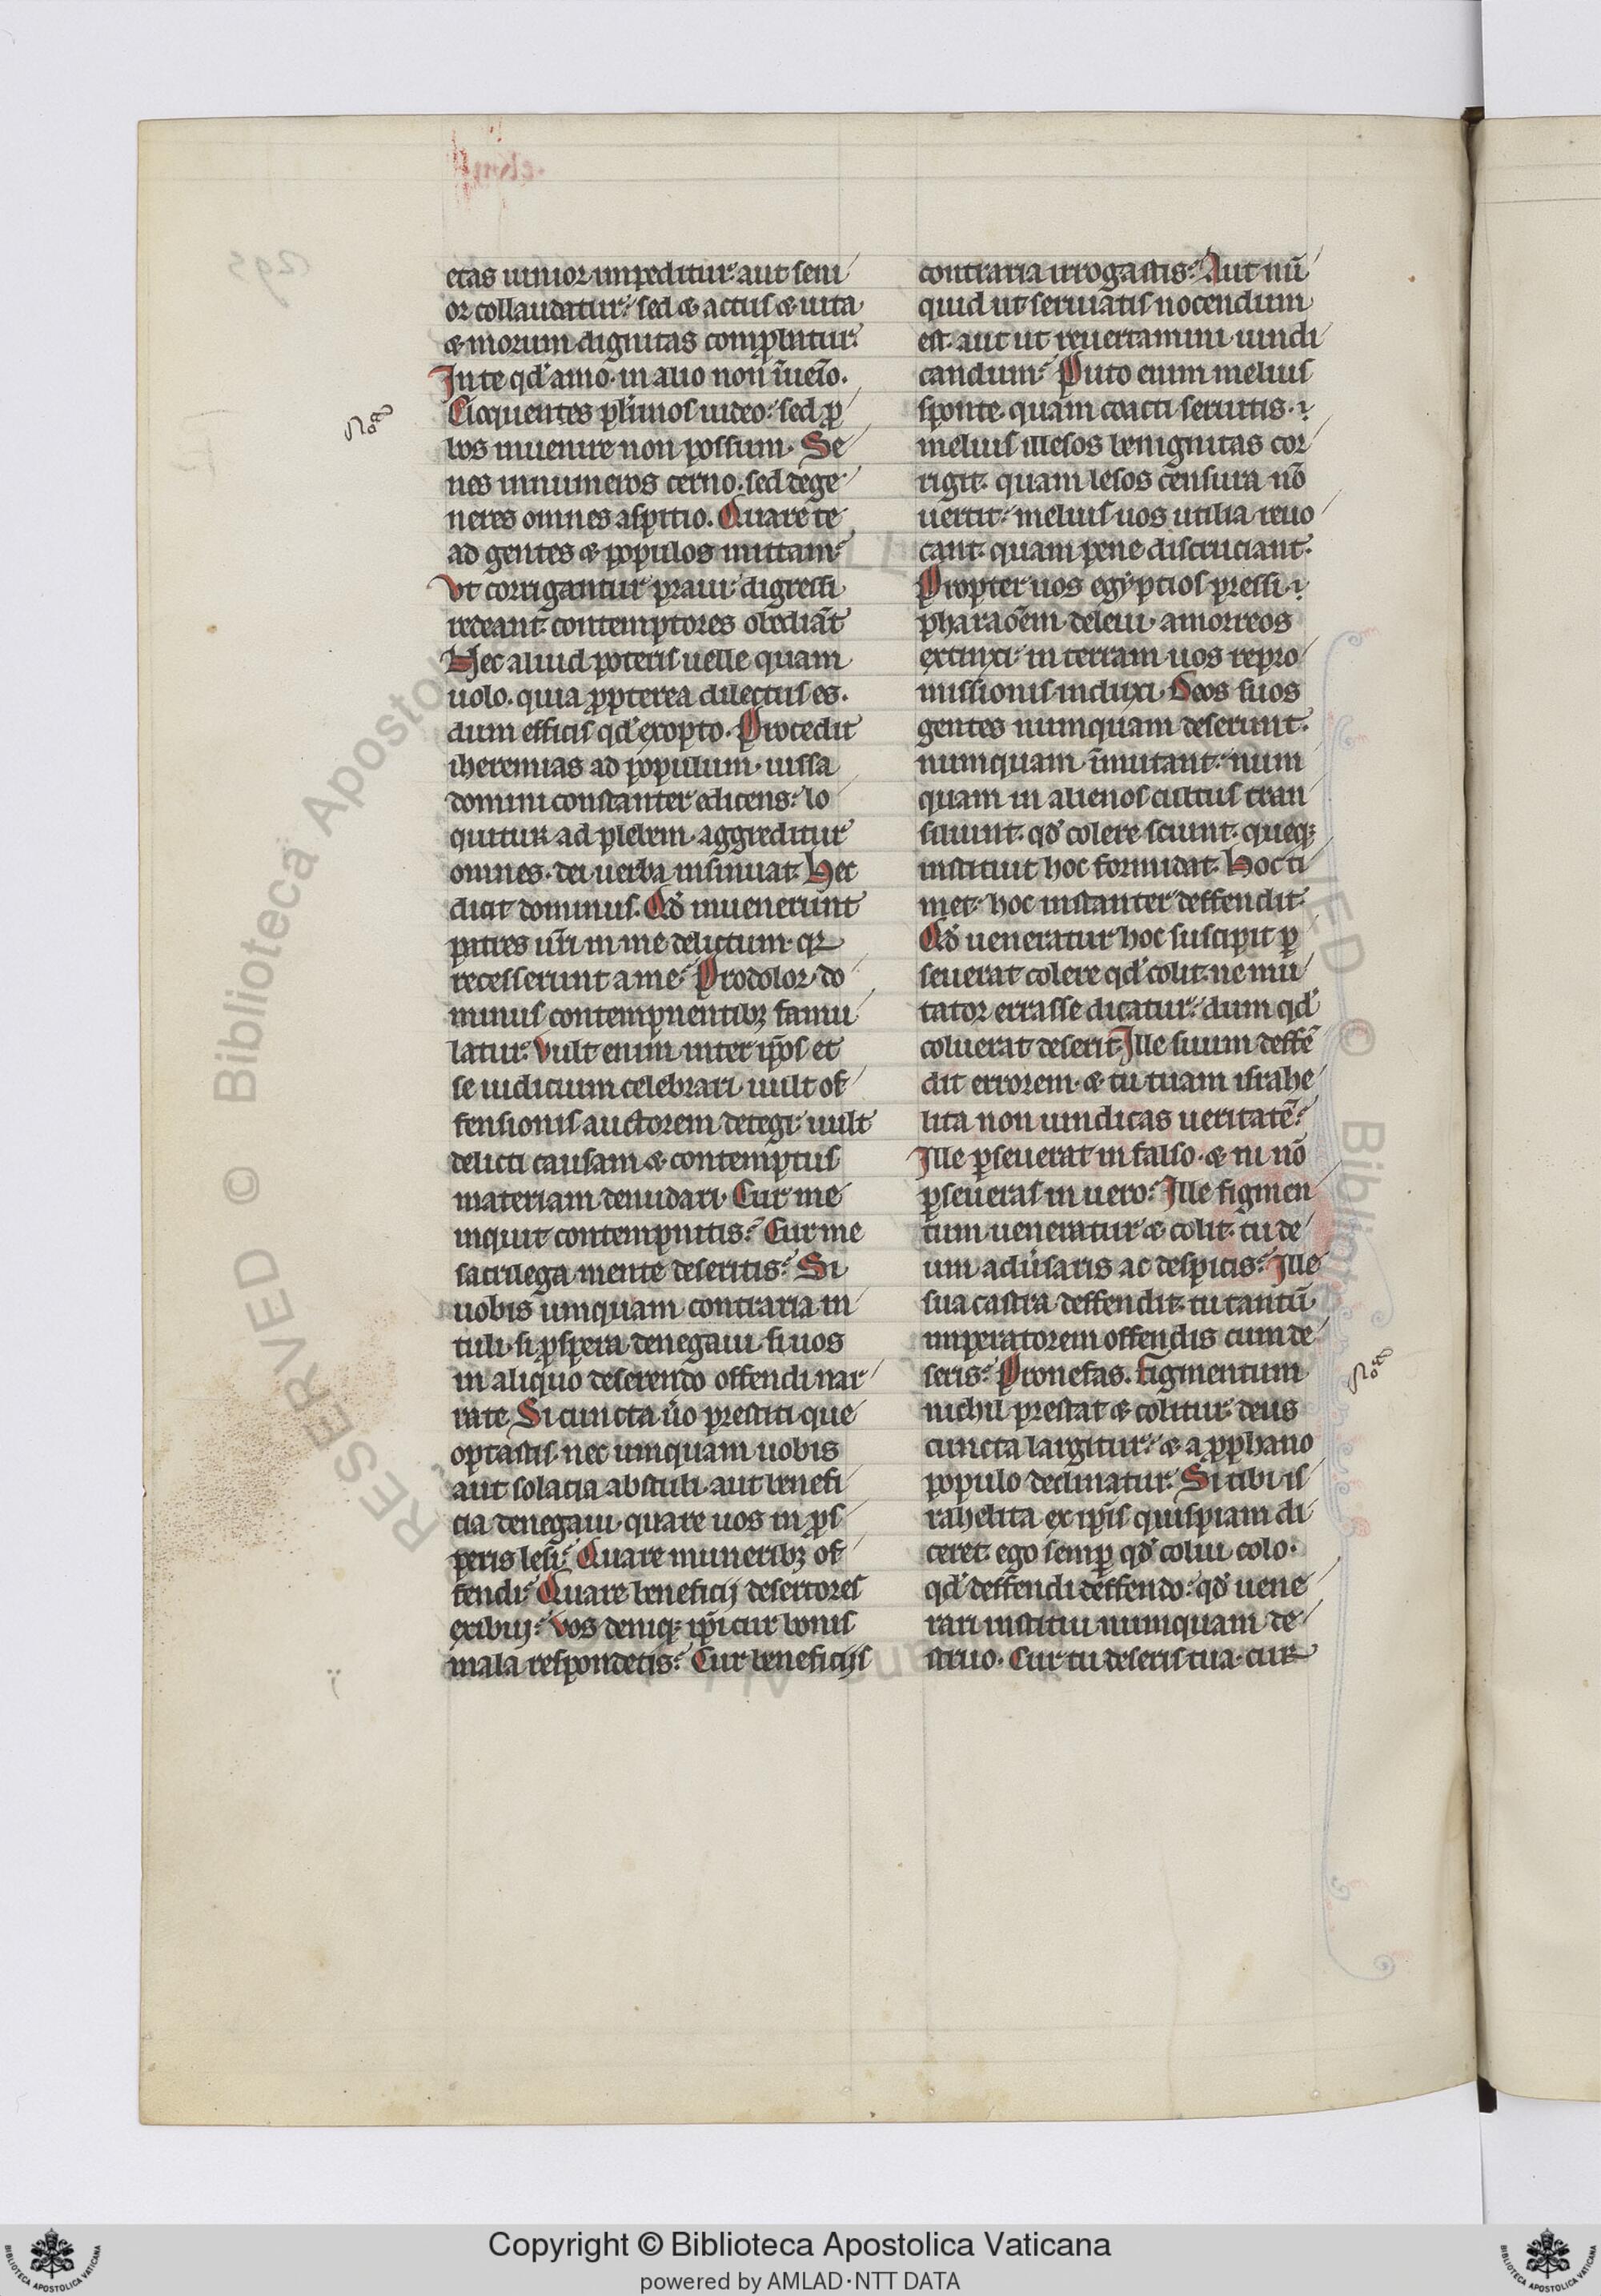 etas iunior impeditur aut seni
or collaudatur: sed & actus & uita
& morum dignitas comprobatur.
In te qd' amo in alio non īuēio.
Eloquentes pl'imos uideo: sed p̱ro
bos inuenire non possum. Se
nes innumeros cerno. sed dege
neres omnes aspitio. Quare te
ad gentes & populos mittam:
Vt corrigantur praui digressi
redeant contemptores obediāt
Hec aliud poteris uelle quam
uolo. quia ꝓpterea dilectus es.
dum efficis qd' exopto. Procedit
iheremias ad populum iussa
domini constanter edicens: lo
quitur ad plebem aggreditur
omnes. dei uerba insinuat. Hec
dicit dominus. Qd' inuenerunt
patres ur̄i in me delictum qr
recesserunt a me: Prodolor do
minus contempnentibꝫ famu
latur. Vult enim inter ip̄os et
se iudicium celebrari uult of
fensionis auctorem detegi: uult
delicti causam & contemptus
materiam denudari. Cur me
inquit contempnitis: Cur me
sacrilega mente deseritis: Si
uobis umquam contraria in
tuli si ꝓspera denegaui si uos
in aliquo deserendo offendi nar
rate. Si cuncta ūo prestiti que
optastis nec umquam uobis
aut solacia abstuli aut benefi
cia denegaui quare uos in ꝓs
peris lesi: Quare muneribꝫ of
fendi: Quare beneficij desertores
exibuj: Vos deniqꝫ ip̄i cur bonis
mala respondetis: Cur beneficijs
contraria irrogastis: Aut nū
quid ut seruiatis nocendum
est. aut ut reuertamini uindi
candum: Puto enim melius
sponte quam coacti seruitis. ⁊
melius illesos benignitas cor
rigit quam lesos censura nō
uertit: melius uos utilia reuo
cant quam pene discruciant.
Propter uos egyptios pressi. ⁊
pharaōem deleui amorreos
extinxi in terram uos repro
missionis induxi. Deos suos
gentes numquam deserunt.
numquam īmutant. num
quam in alienos cultus tran
siliunt. qd' colere sciunt. queqꝫ
instituit hoc formidat. Hoc ti
met. hoc instanter deffendit.
Qd' ueneratur hoc suscipit ꝑ
seuerat colere qd' colit. ne mu
tator errasse dicatur: dum qd'
coluerat deserit. Ille suum deffē
dit errorem & tu tuam israhe
lita non uindicas ueritatē:
Ille ꝑseuerat in falso & tu nō
ꝑseueras in uero: Ille figmen
tum ueneratur & colit. tu de
um adūsaris ac despicis: Ille
sua castra deffendit. tu tantū
imperatorem offendis cum de
seris: Pronefas. Figmentum
nichil prestat & colitur. deus
cuncta largitur: & a ꝓphano
populo declinatur. Si tibi is
rahelita ex ip̄is quispiam di
ceret ego semꝑ qd' colui colo.
qd' deffendi deffendo: qd' uene
rari institui numquam de
struo. Cur tu deseris tua cur
Copyright © Biblioteca Apostolica Vaticana
powered by AMLAD·NTT DATA